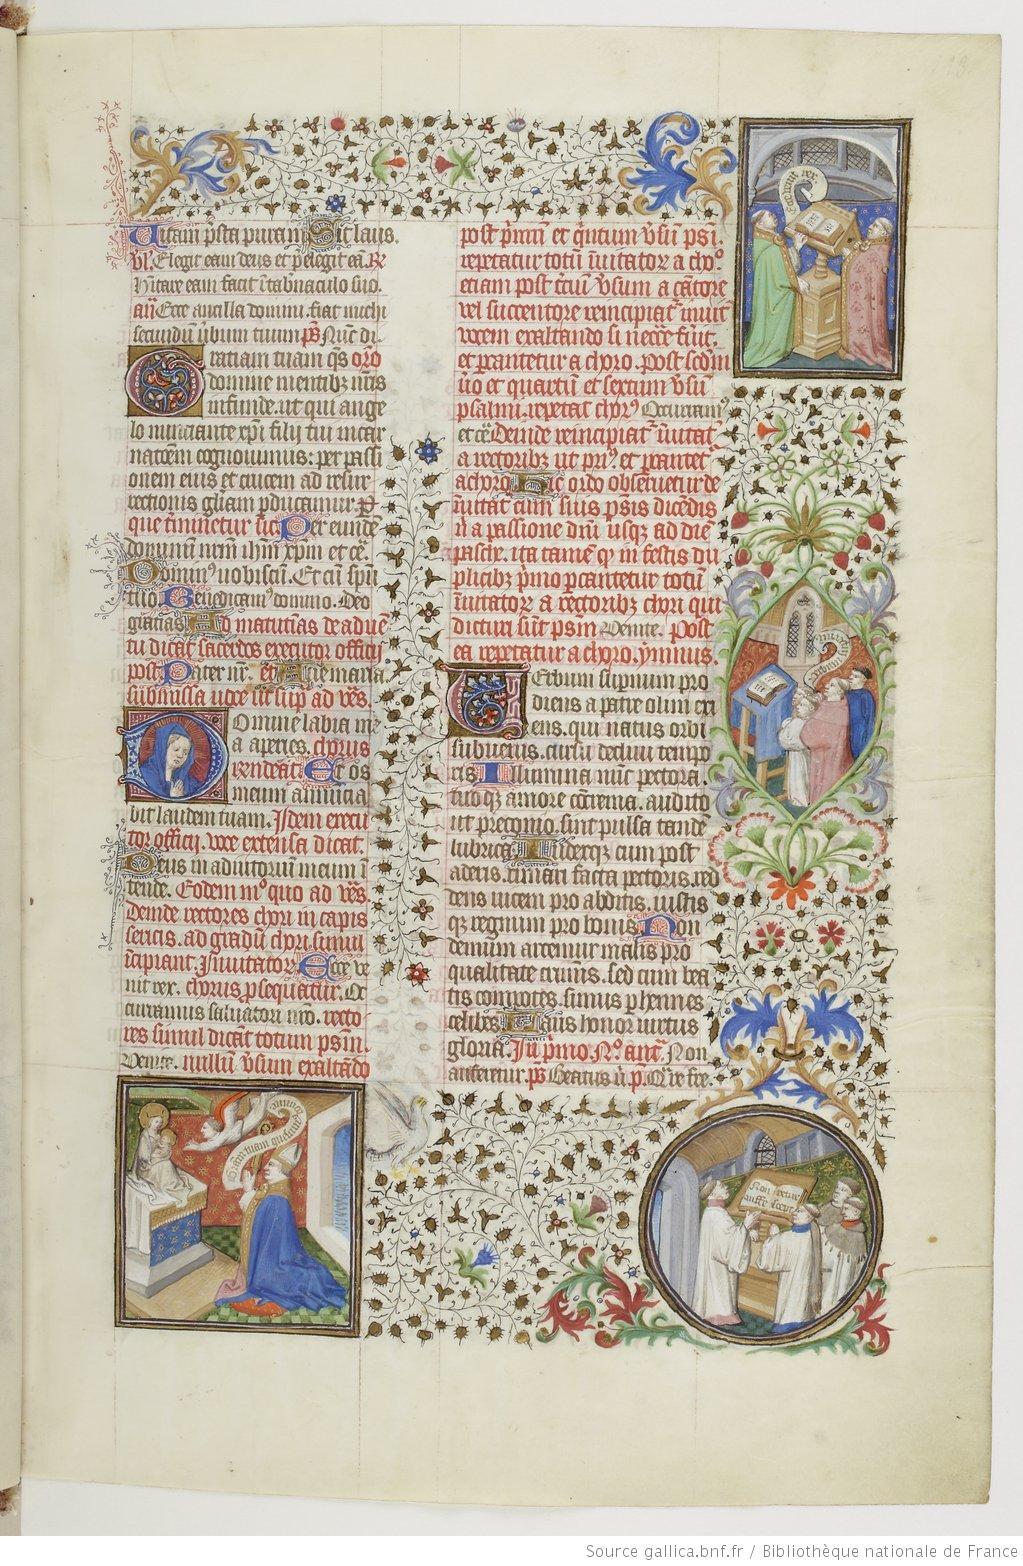 Vitam psta puram Sic laus.
Vs. Elegit eam deus et pelegit eam R
Hitare eam facit i tabnaculo suo.
añ Ecce ancilla domini. fiat michi
secundū vbum tuum ps Nūc di.
Gratiam tuam qs oro
domine mentibz nris
infunde. ut qui ange
lo nunciante xpi filij tui incar
nacōem cognouimus: per passi
onem eius et crucem ad resur
rectionis glīam pducamur. P
que tminetur sic Per eunde
dominū nrm ihm xpm et ce.
Dominꝰ uobiscū. Et cū spū
tuo Benedicamꝰ domino. Deo
gracias Ad matutinas de aduē
tu dicat sacerdos executor officij
post Pater nr. et Aue maria
submissa uoce ut sup ad vs.
Domine labia m
ea aperies. chorus
rendeat Et os
meum annūcia
bit laudem tuam. Idem execu
tor officij. uoce extensa dicat.
Deus in adiutoriū meum i
tende. Eodem mo quo ad vs.
Deinde rectores chori in capis
sericis. ad gradū chori simul
īcipiant. Inuitator Ecce ve
nit rex. chorus psequatur. Oc
curamus saluatori nro. recto
res simul dicāt totum psm.
Venite. nullū vsum exaltādo
post pmū et quītum vsū psi.
repetatur totū īuitator a choo.
etiam post tciū vsum a cātore
vel succentore reincipiat inuit
uocem exaltando si necce fuit.
et pcantetur a choro. Post scdm
uo et quartū et sextum vsū
psalmi. repetat chorꝰ Occuramꝰ
et ce Deinde reincipiat īuitat
a rectoribz ut priꝰ. et pcantet
a choro Hic ordo obseruetur de
īuitat cum suis psmis dicēdis
usqz ad diē
pasche. ita tamē q in festis du
plicibz pmo pcantetur totū
īuitator a rectoribz chori qui
dicturi sūt psm Venite. Post
ea repetatur a choro. ymnus.
Verbum supnum pro
diens a patre olim exi
ens. qui natus orbi
subuenis. cursu decliui temp
ris Illumina nūc pectora
tuo qz amore cōcrema. audito
ut preconio. sint pulsa tande
lubrica Iudex qz cum post
aderis. rimari facta pectoris. red
dens uicem pro abditis. iustis
qz regnum pro bonis Non
demum arcemur malis pro
qualitate crimis. sed cum bea
tis compotes. simus phennes
celibes Laus honor uirtus
gloria. In pmo No. ant. Non
auferetur. ps Beatus u. p. Qre fre.
Ecce venit rex
Source gallica.bnf.fr / Bibliothèque nationale de France